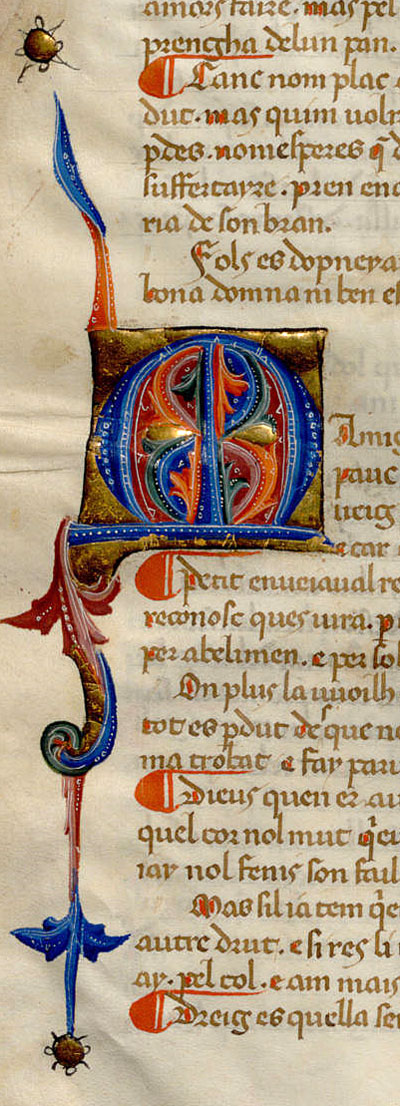 amors faire. mas pel
prengha delun pan.
Tanc nom plac
dut. mas quim uolu
pdes. nomesperes q̄ d
suffertayre. pren enc
ria de son bran.
Fols es dopneya
bona domna ni ben el
M
Amig
pauc
ueig
e car
petit enueiaualre
reconosc ques uira. p
per abelimen. e per sol
On plus la uuoilh
tot es pdut des que no
ma trobat e fay paru
Dieus quen er au
quel cor nol mut q̄eu
iay nol fenis son faul
Mas sil ia tem q̄e
autre drut. e si res li
ay. pel col. e am mais
Dreig es quella se